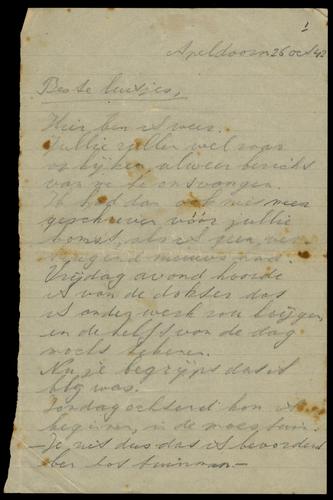 1
Apeldoorn 26 oct 42
Beste luitjes,
Hier ben ik weer.
Jullie zullen wel raar
op kijken, alweer bericht
van me te ontvangen.
Ik had dan ook niet meer
geschreven vóór jullie
komst, als ik geen ver-
nieuws had.
Vrijdag avond hoorde
ik van de dokter dat
ik ander werk zou krijgen
en de helft van de dag
mocht
Nu je begrijpt dat ik
blij was.
Zondagochtend kon ik
beginnen, in de moestuin.
Je ziet dus dat ik bevorderd
ben tot tuinman.—